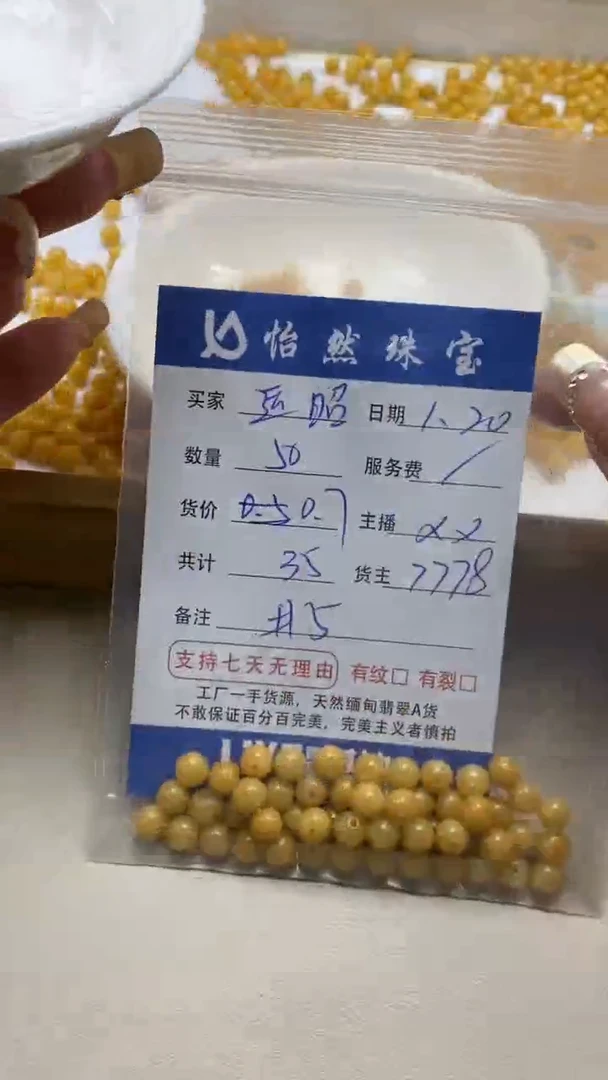 怡然珠宝
买家 孟昭 日期 1.20
数量 50 服务费 /
货价 0.5 0.7 主播
共计 35 货主 7778
备注 #5
支持七天无理由 有纹□ 有裂□
工厂一手货源，天然缅甸翡翠A货
不敢保证百分百完美，完美主义者慎拍